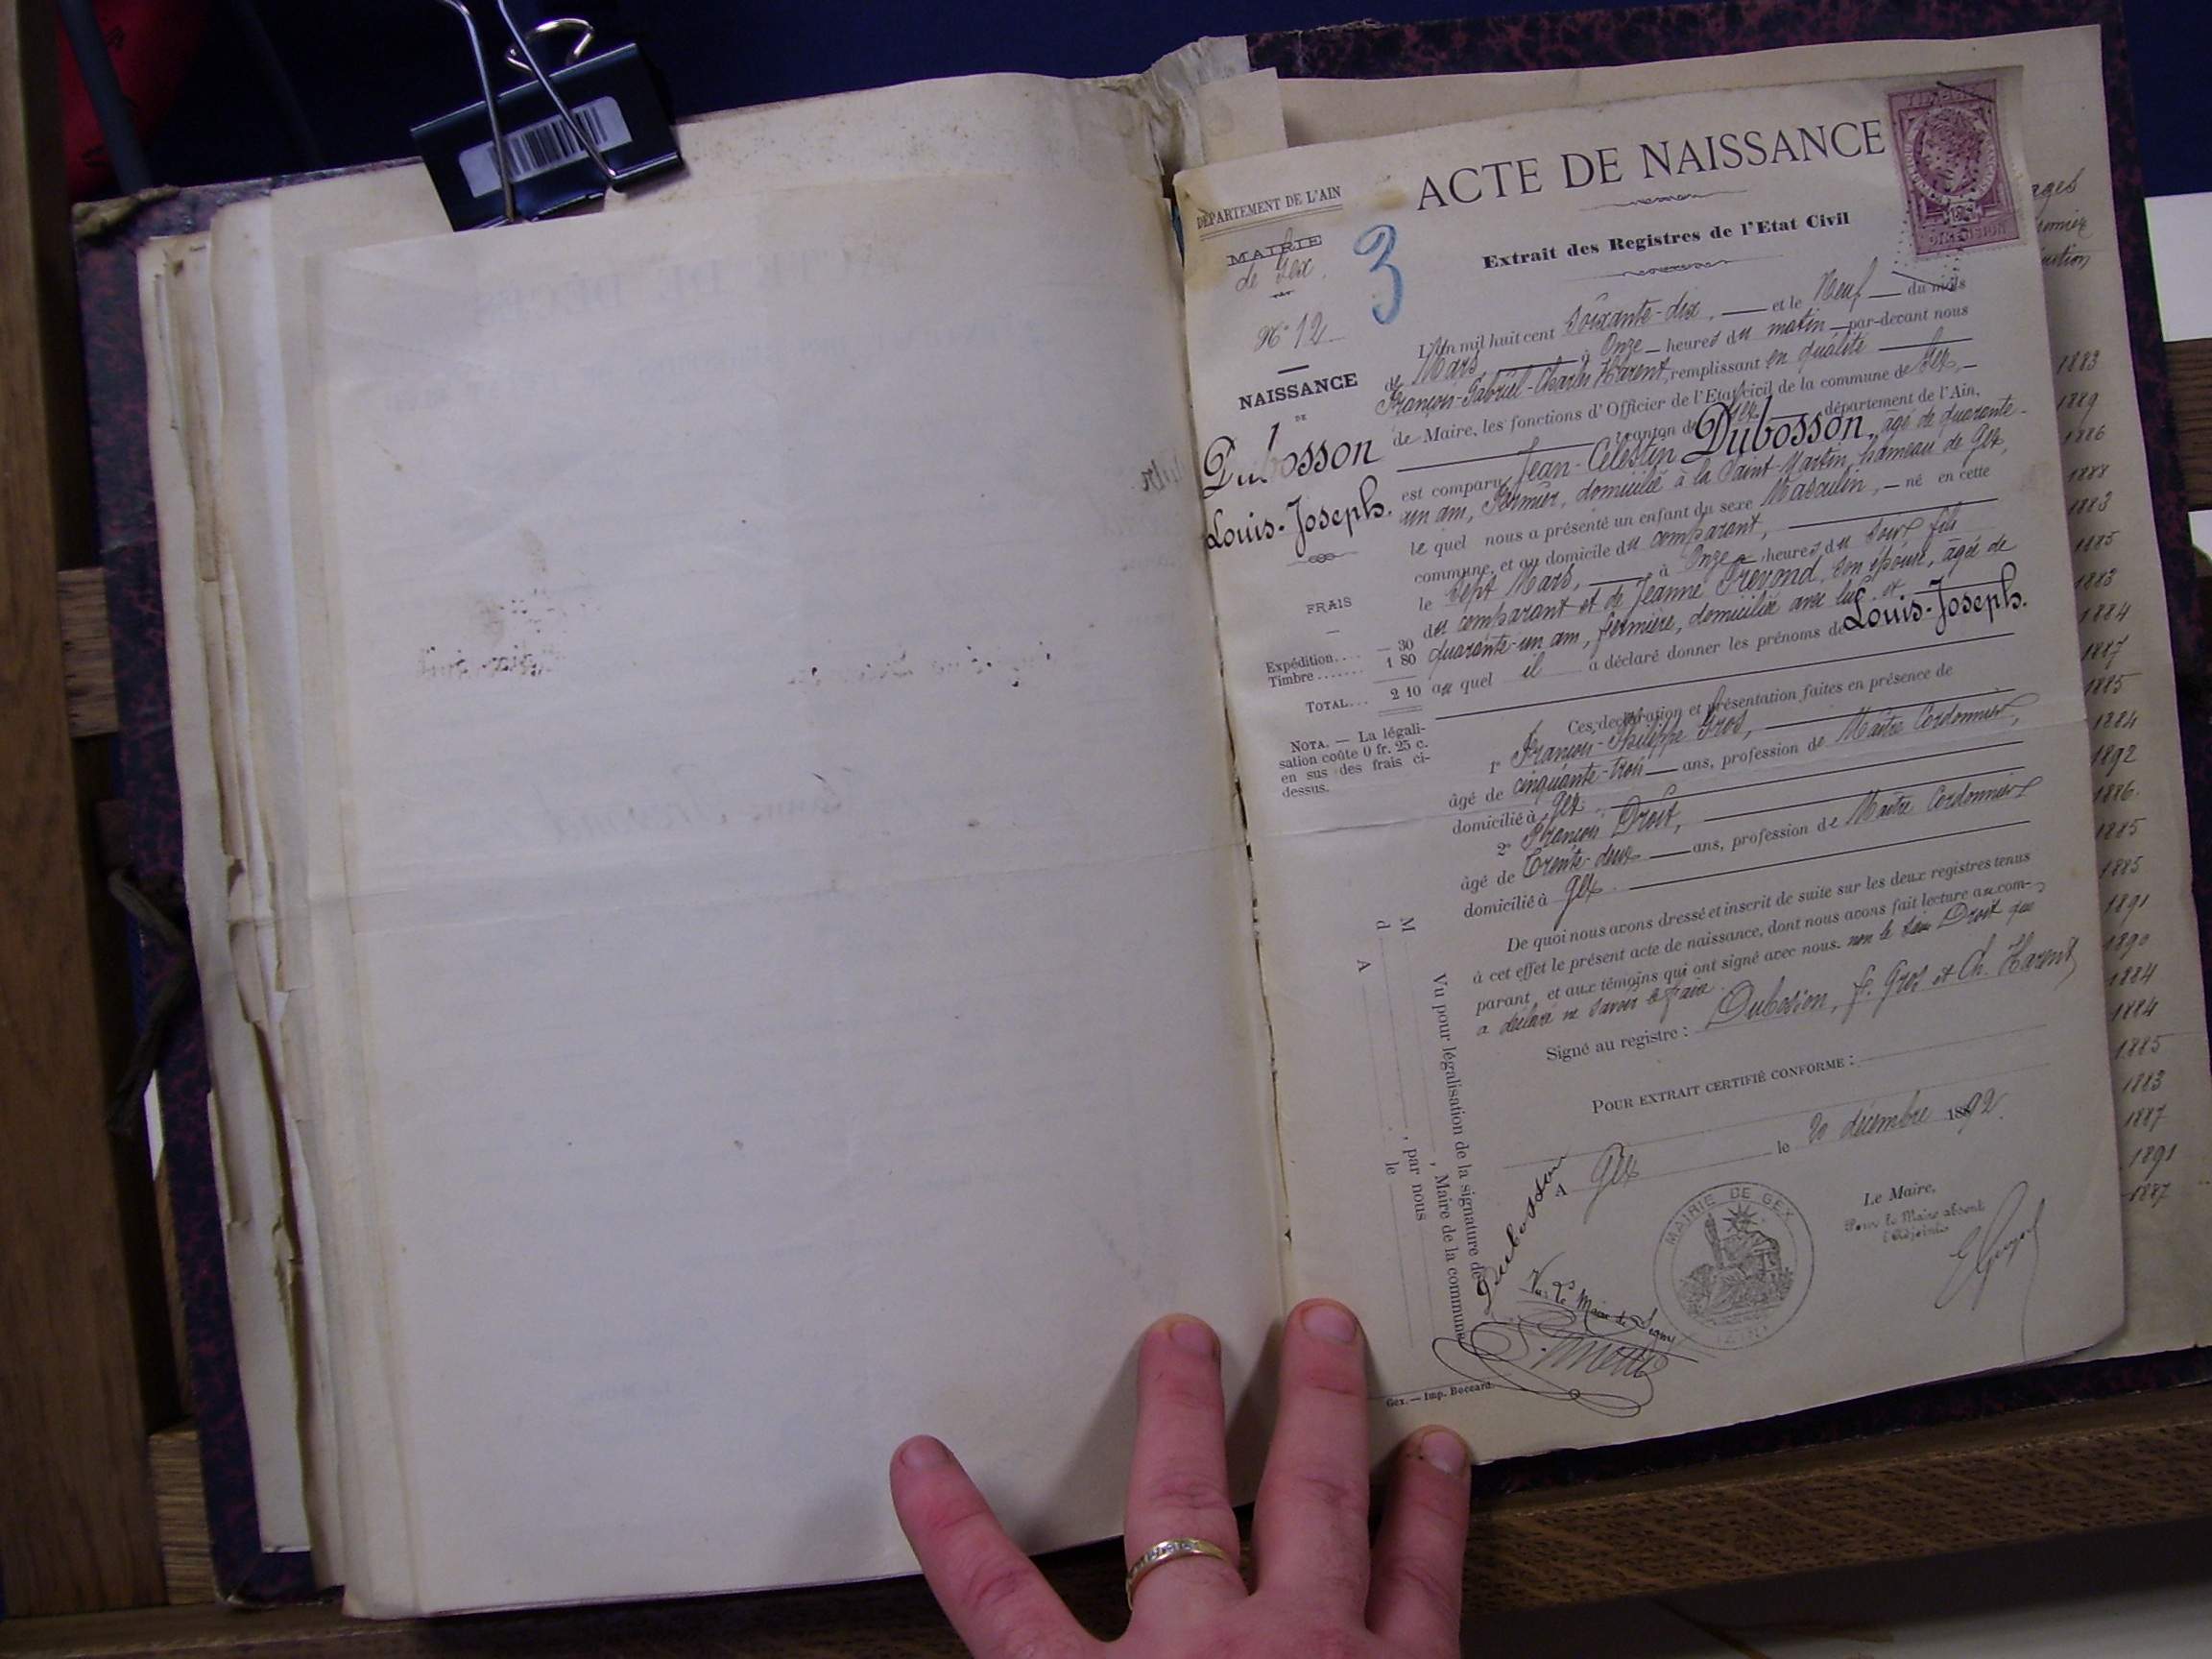 DÉPARTEMENT DE L'AIN
MAIRIE
de Gex.
N° 12
NAISSANCE
DE
Dubosson
Louis-Joseph.
FRAIS
Expédition.... — 30
Timbre....... 1 80
TOTAL... 2 10
NOTA. — La légali-
sation coûte 0 fr. 25 c.
en sus des frais ci-
dessus.
3
ACTE DE NAISSANCE
Extrait des Registres de l'Etat Civil
DIMENSION
L'An mil huit cent Soixante-dix, — et le Neuf — du mois
de Mars — à Onze — heures du matin — par-devant nous
François-Gabriel-Charles Harent, remplissant en qualité —
de Maire, les fonctions d'Officier de l'Etat civil de la commune de Gex, —
— canton de Gex département de l'Ain,
est comparu Jean-Célestin Dubosson, âgé de quarante-
un ans, Fermier, domicilié à la Saint-Martin, hameau de Gex,
lequel nous a présenté un enfant du sexe Masculin, — né en cette
commune, et au domicile du comparant, —
le Sept Mars, — à Onze — heures du Soir fils
du comparant et de Jeanne Prevond, son épouse, âgée de
quarante-un ans, fermière, domiciliée avec lui, et
auquel il a déclaré donner les prénoms de Louis-Joseph.
Ces déclaration et présentation faites en présence de
1° François-Philippe Gros, —
âgé de cinquante-trois — ans, profession de Maître Cordonnier,
domicilié à Gex. —
2° François Droit, —
âgé de Trente-deux — ans, profession de Maître Cordonnier
domicilié à Gex —
De quoi nous avons dressé et inscrit de suite sur les deux registres tenus
à cet effet le présent acte de naissance, dont nous avons fait lecture au com-
parant, et aux témoins qui ont signé avec nous. non le sieur Droit que
a déclaré ne savoir le faire.
Signé au registre : Dubosson, F. Gros et Ch. Harent
POUR EXTRAIT CERTIFIÉ CONFORME :
A Gex le 20 décembre 1892.
Le Maire,
Pour le Maire absent
l'Adjoint
MAIRIE DE GEX
(AIN)
Vu pour légalisation de la signature de
M , Maire de la commune
d , par nous
A le
Dubosson
Vu. Le Maire de Segny
Gex. — Imp. Beccard.
ages
1883
1889
1886
1888
1883
1885
1883
1884
1887
1885
1884
1892
1886
1885
1885
1891
1890
1884
1884
1885
1883
1887
1891
1887